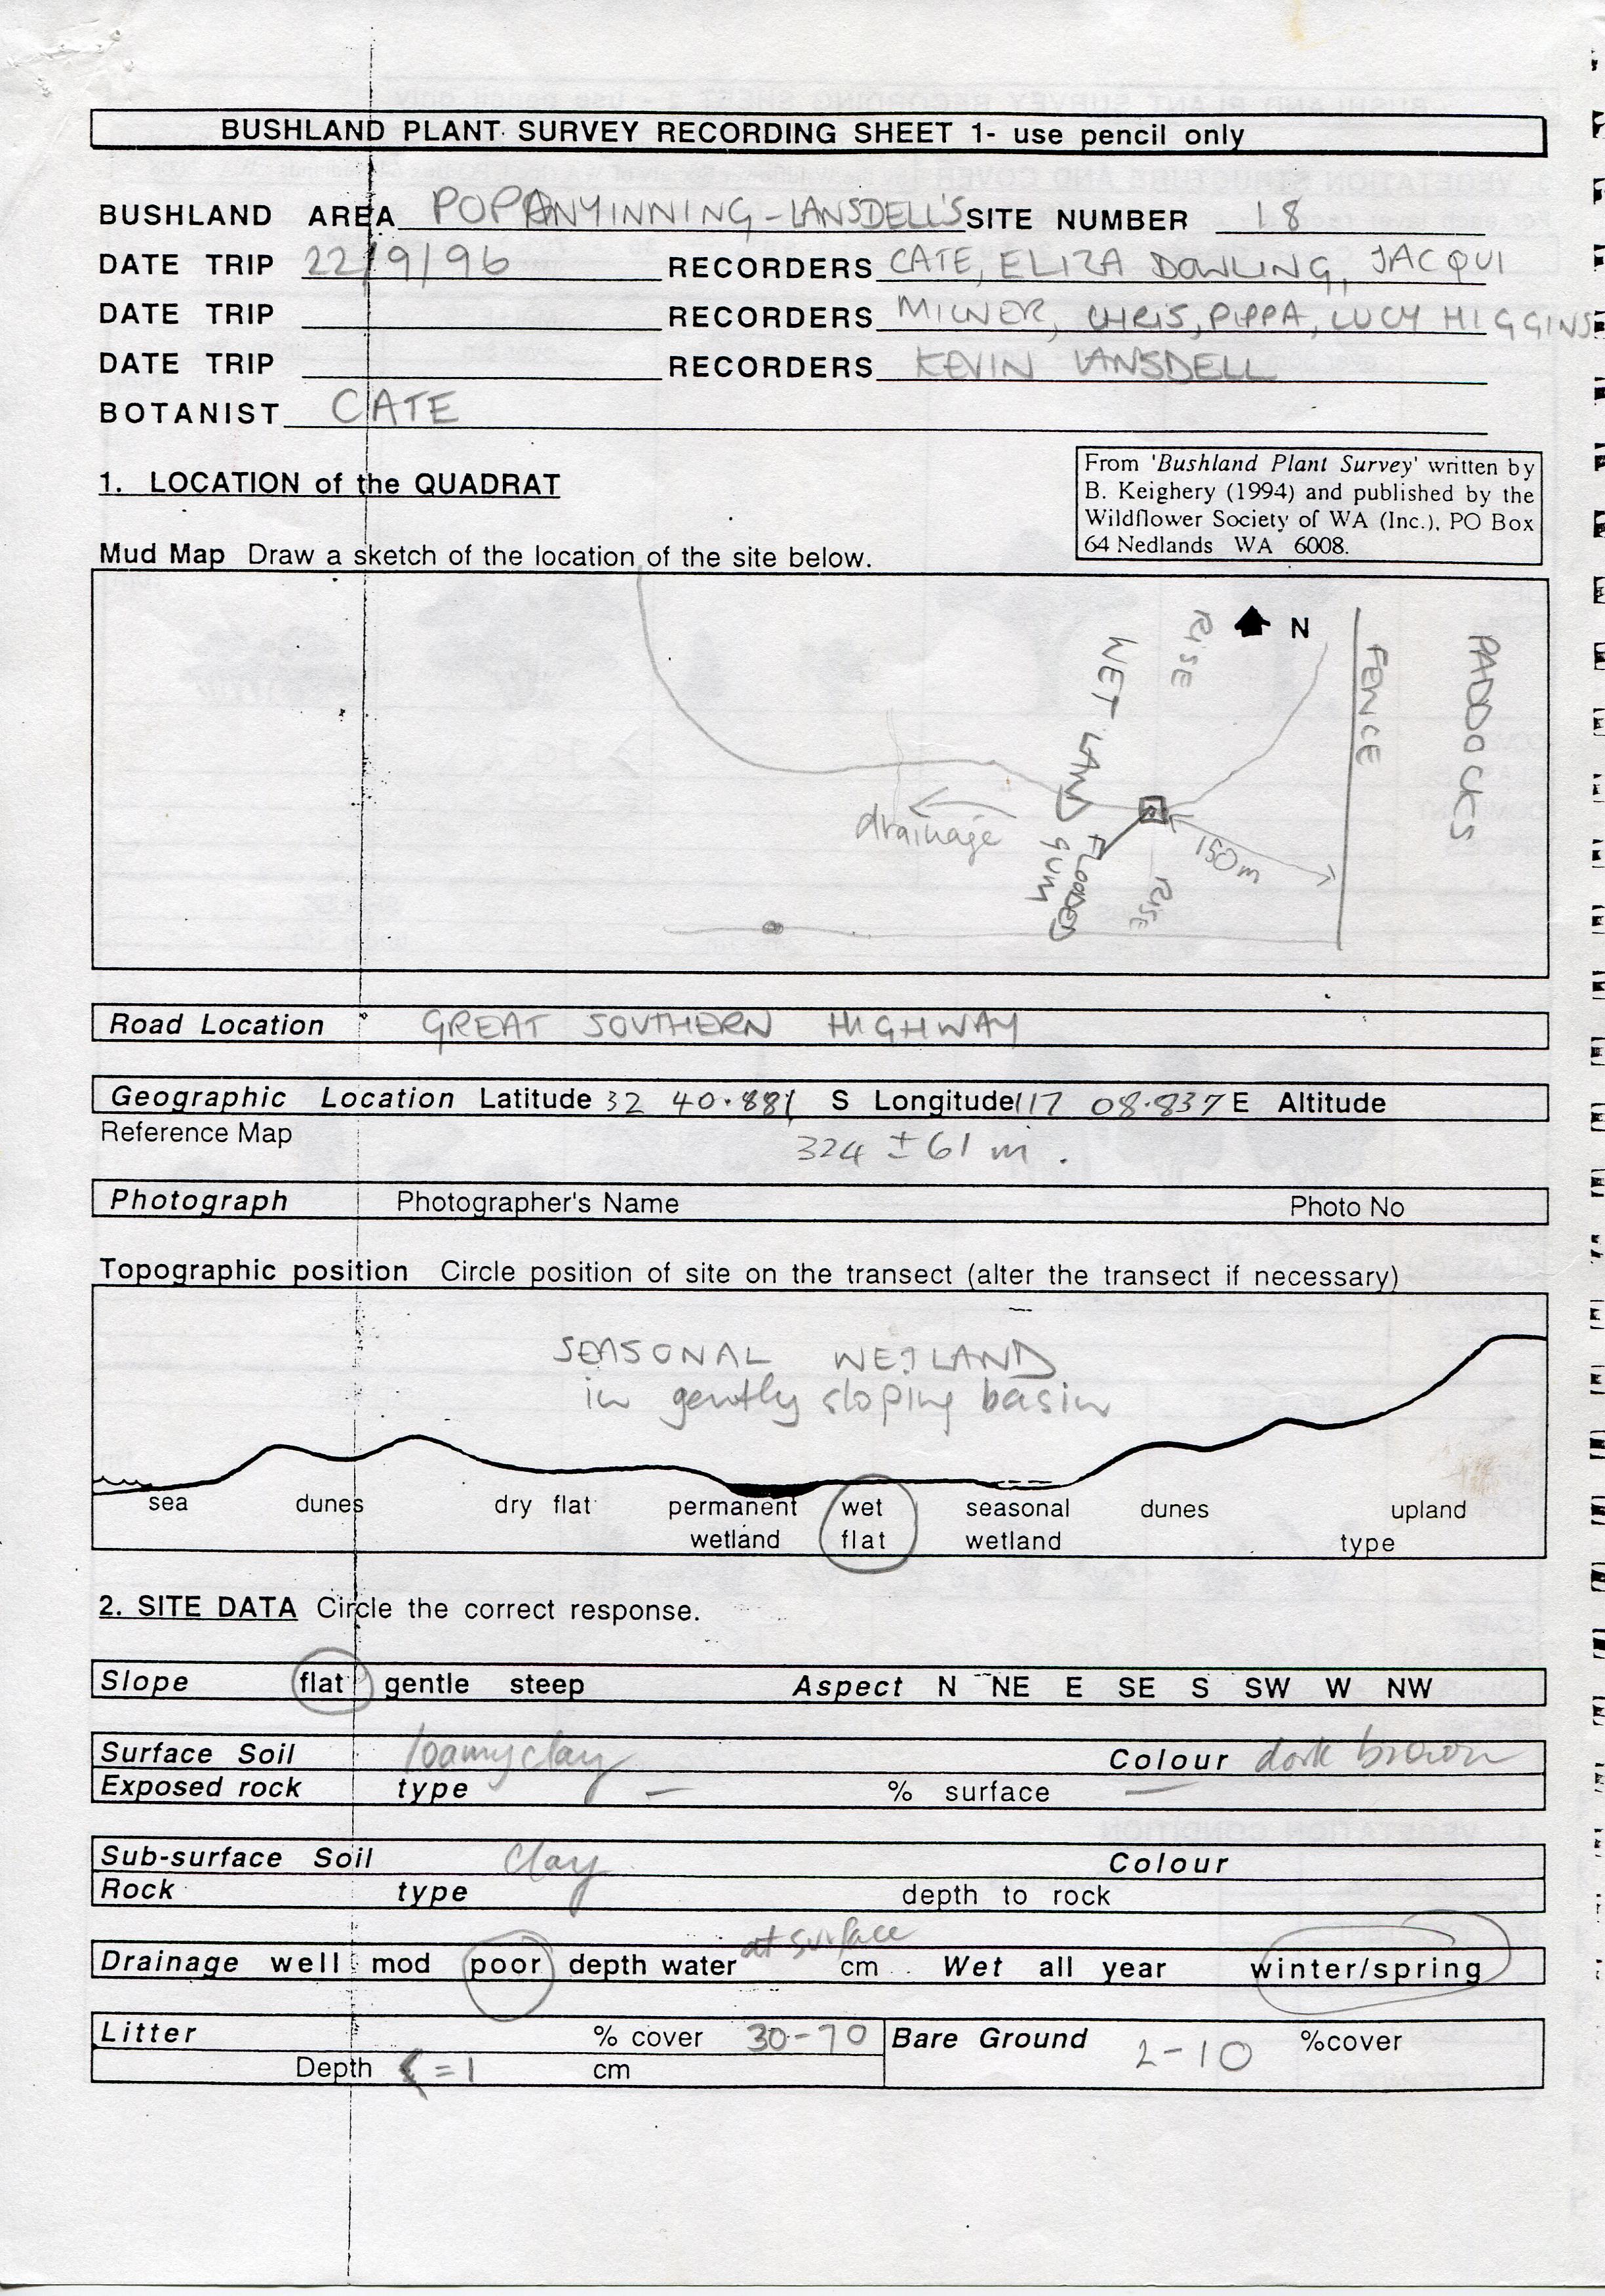 BUSHLAND PLANT SURVEY RECORDING SHEET 1- use pencil only
BUSHLAND AREA POPANYINNING - LANSDELL'S SITE NUMBER 18
DATE TRIP 22/9/96 RECORDERS CATE, ELIZA DOWLING, JACQUI
DATE TRIP RECORDERS MILNER, CHRIS, PIPPA, LUCY HIGGINS
DATE TRIP RECORDERS KEVIN LANSDELL
BOTANIST CATE
1. LOCATION of the QUADRAT
From 'Bushland Plant Survey' written by
B. Keighery (1994) and published by the
Wildflower Society of WA (Inc.), PO Box
64 Nedlands WA 6008.
Mud Map Draw a sketch of the location of the site below.
N
RISE
WET LAND
FENCE
PADDOCKS
drainage
FLOODED
GUM
150m
RISE
Road Location GREAT SOUTHERN HIGHWAY
Geographic Location Latitude 32 40.881 S Longitude 117 08.837 E Altitude
Reference Map 324 ± 61 m.
Photograph Photographer's Name Photo No
Topographic position Circle position of site on the transect (alter the transect if necessary)
SEASONAL WETLAND
in gently sloping basin
sea dunes dry flat permanent wet seasonal dunes upland
wetland flat wetland type
2. SITE DATA Circle the correct response.
Slope flat gentle steep Aspect N NE E SE S SW W NW
Surface Soil loamy clay Colour dark brown
Exposed rock type — % surface —
Sub-surface Soil clay Colour
Rock type depth to rock
Drainage well mod poor depth water at surface cm Wet all year winter/spring
Litter % cover 30-70 Bare Ground 2-10 %cover
Depth <=1 cm